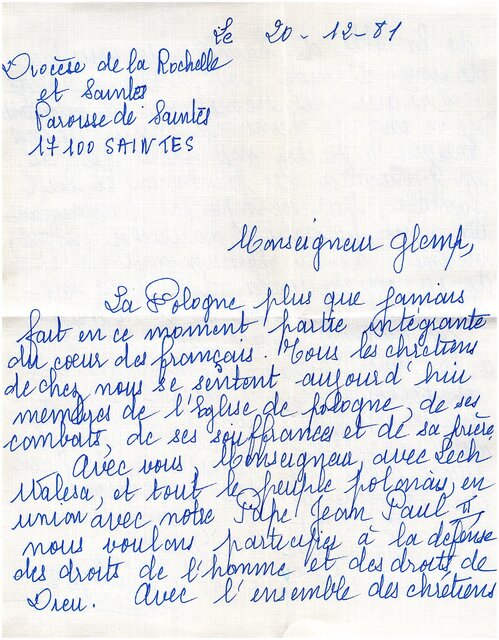 Le 20-12-81
Diocèse de la Rochelle
et Saintes
Paroisse de Saintes
17100 SAINTES
Monseigneur Glemp,
La Pologne plus que jamais
fait en ce moment partie intégrante
du coeur des français. Tous les chrétiens
de chez nous se sentent aujourd'hui
membres de l'Eglise de pologne, de ses
combats, de ses souffrances et de sa prière
Avec vous, Monseigneur, avec Lech
Walesa, et tout le peuple polonais, en
union avec notre Pape Jean Paul II,
nous voulons participer à la défense
des droits de l'homme et des droits de
Dieu. Avec l'ensemble des chrétiens